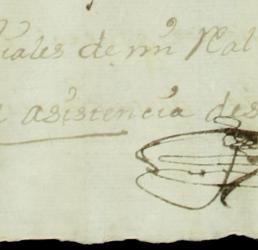 iales de mi Real
asistencia des